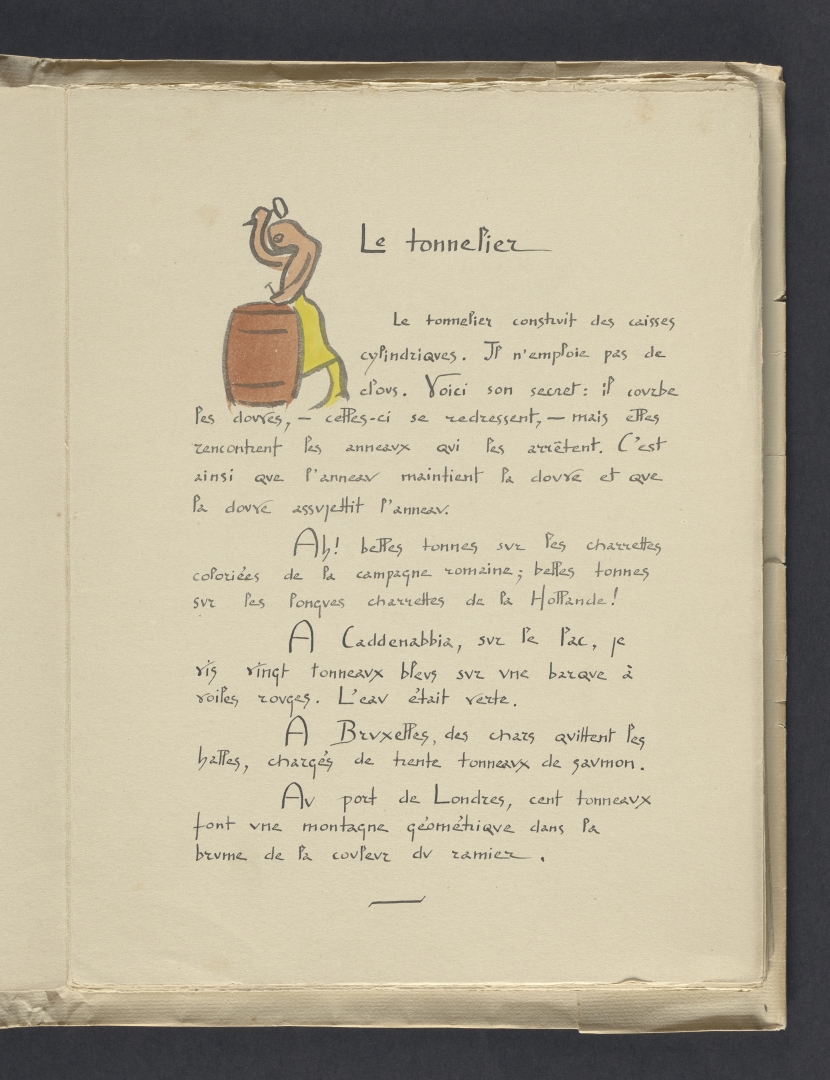 Le tonnelier
Le tonnelier construit des caisses
cylindriques. Il n'emploie pas de
clous. Voici son secret : il courbe
les douves, — celles-ci se redressent, — mais elles
rencontrent les anneaux qui les arrêtent. C'est
ainsi que l'anneau maintient la douve et que
la douve assujettit l'anneau.
Ah! belles tonnes sur les charrettes
coloriées de la campagne romaine; belles tonnes
sur les longues charrettes de la Hollande!
A Caddenabbia, sur le lac, je
vis vingt tonneaux bleus sur une barque à
voiles rouges. L'eau était verte.
A Bruxelles, des chars quittent les
halles, chargés de trente tonneaux de saumon.
Au port de Londres, cent tonneaux
font une montagne géométrique dans la
brume de la couleur du ramier.